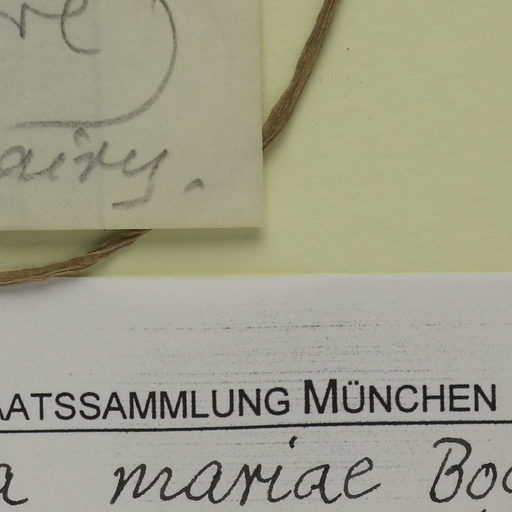 airy.
AATSSAMMLUNG MÜNCHEN
a mariae Boc